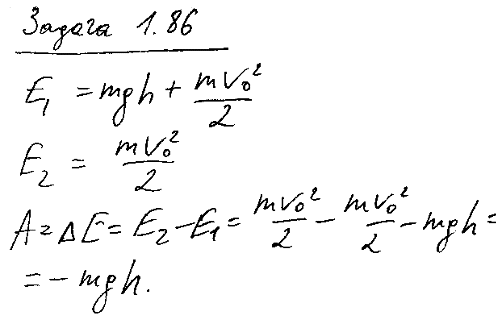 Задача 1.86
E₁ = mgh + mv₀²/2
E₂ = mv₀²/2
A = ΔE = E₂ - E₁ = mv₀²/2 - mv₀²/2 - mgh =
= - mgh.